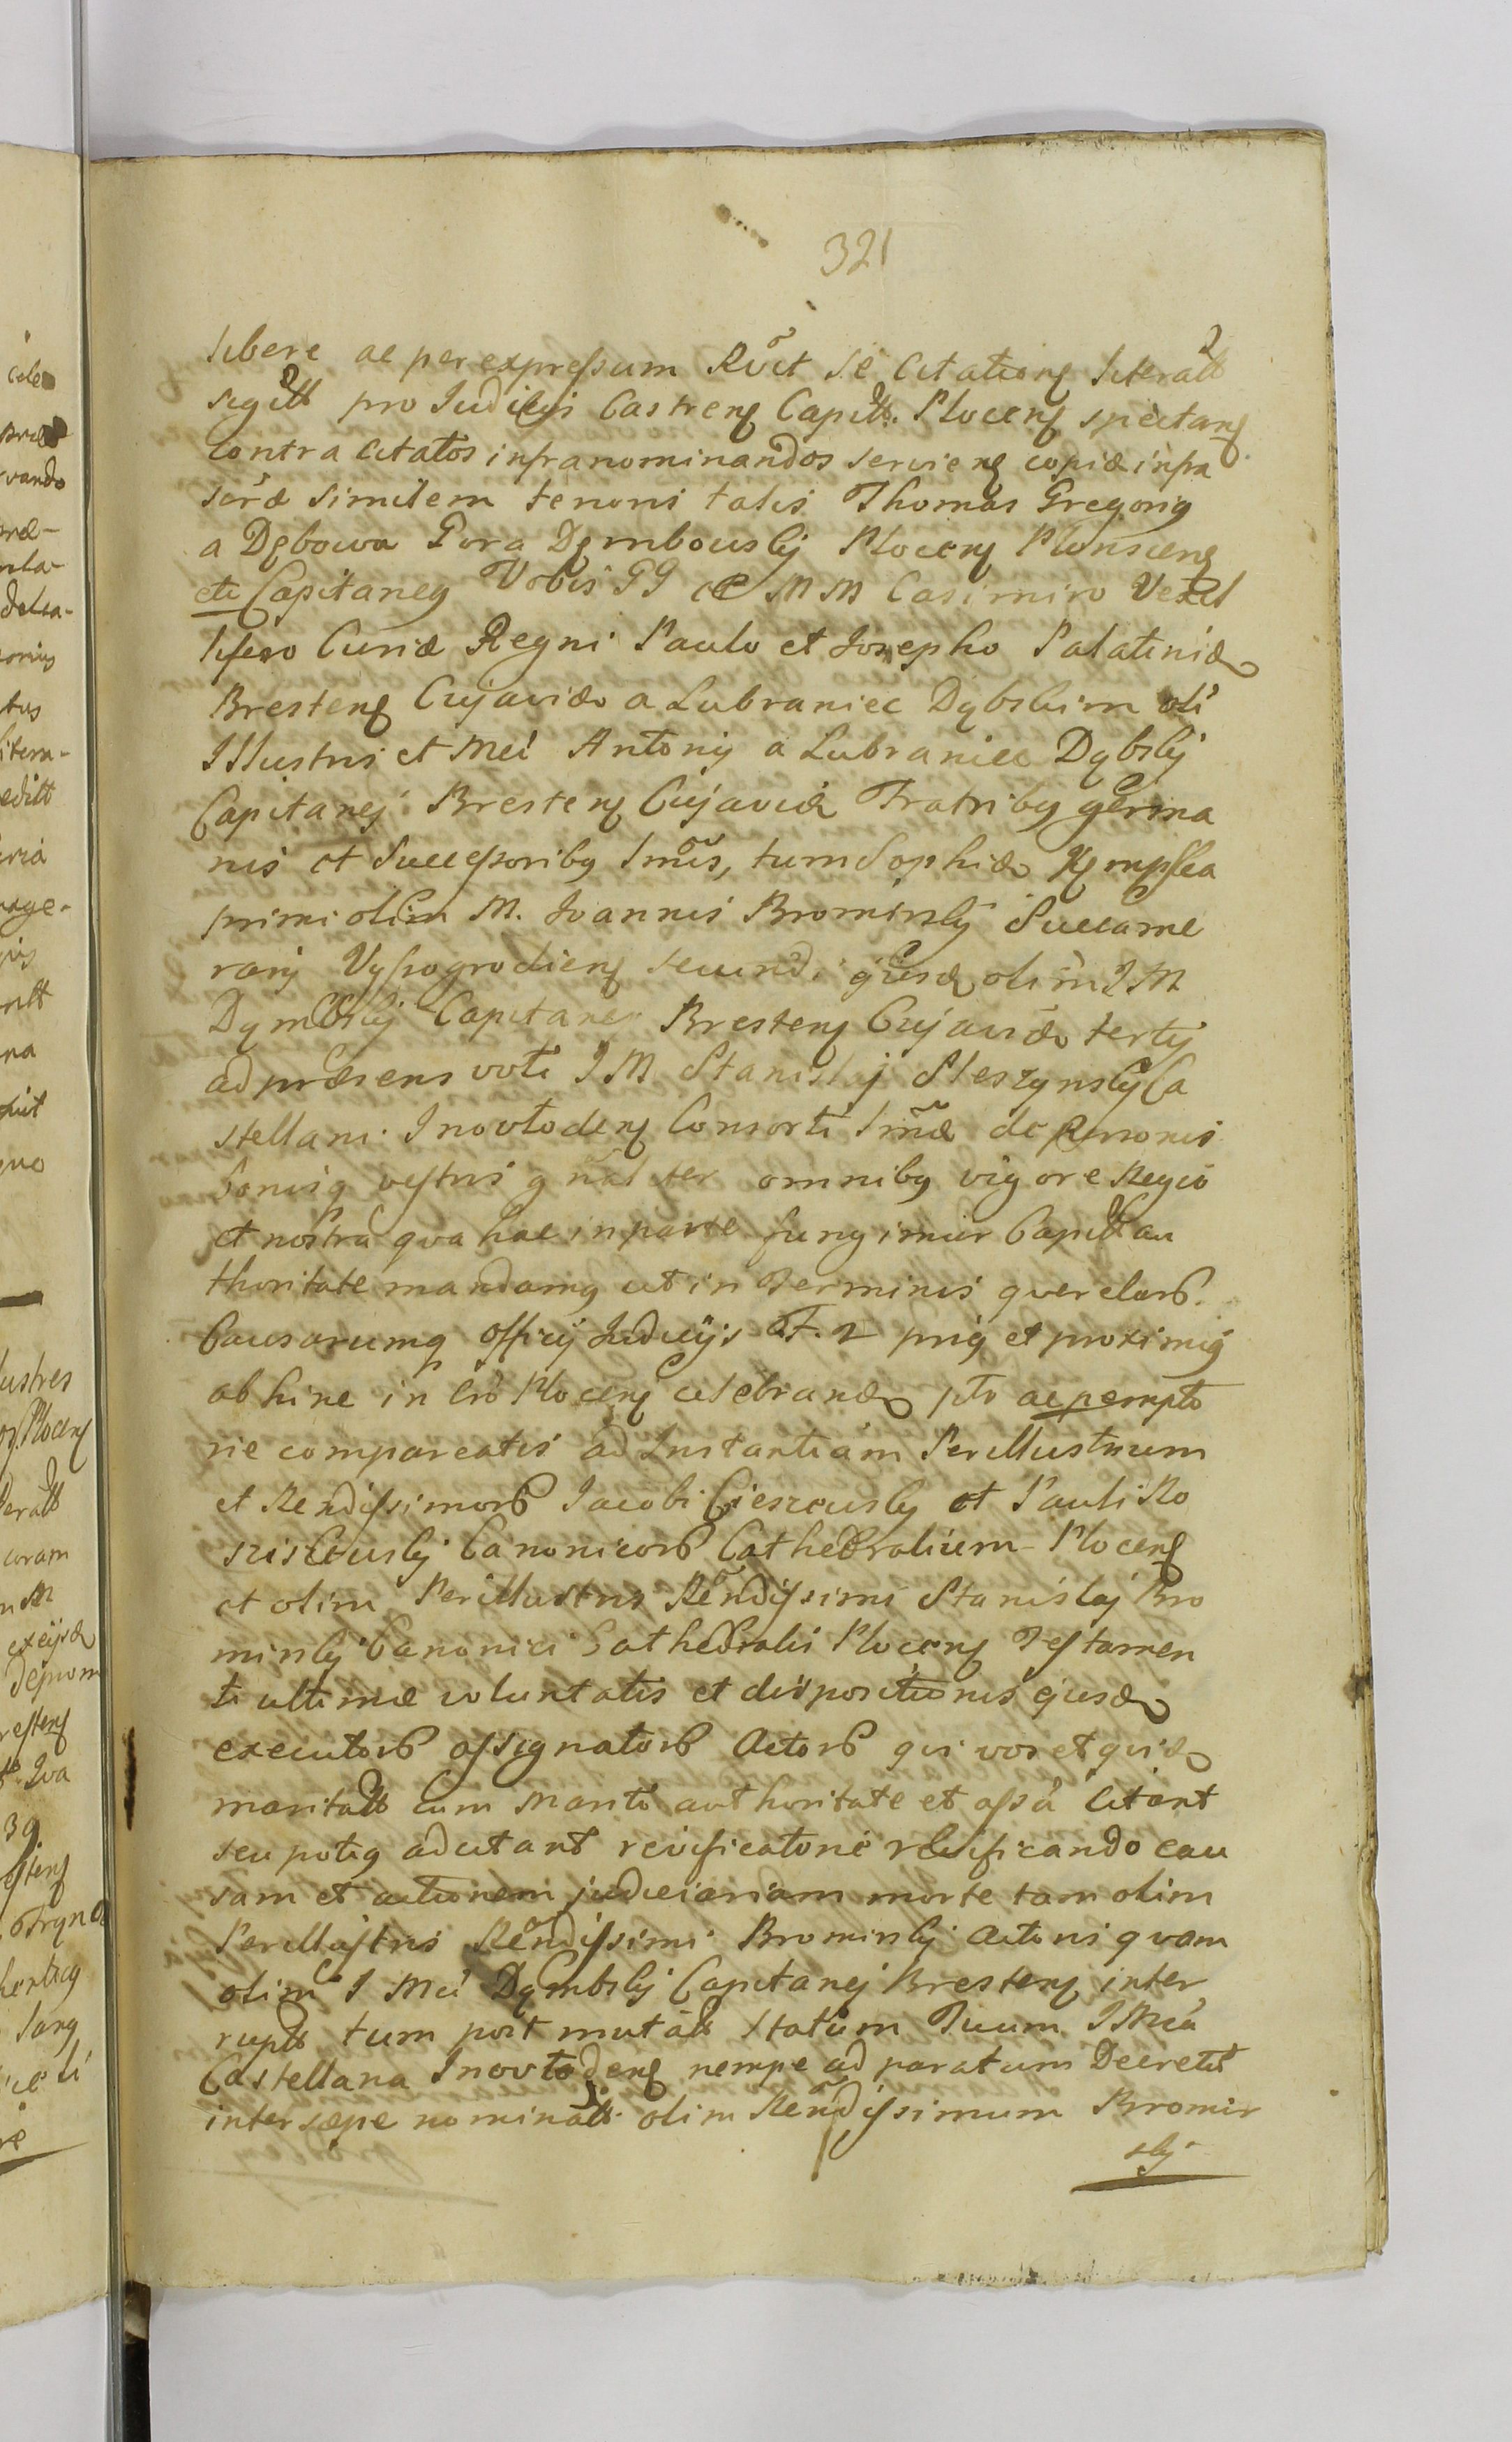 321
libere ac per expressum Rvit se Citationẽ literatt
sigitt pro Judicijs Castrenẽ Capitt. Plocenẽ spectanẽ
contra citatos infranominandos servienẽ copiæ infra
scræ similem tenoris talis Thomas Gregorig
a Dębowa Gora Dęmbowskj Plocenẽ Plonscenẽ
etc Capitaneg Vobis GG ac MM Casimiro Vexil
lifero Curiæ Regni Paulo et Josepho Palatinidæ
Brestenẽ Cujaviæ a Lubraniec Dąbskim oli
Illustris et Mci Antonij a Lubraniec Dąbskj
Capitanej Brestenẽ Cujaviæ Fratribg germa
nis et Successoribg lmis, tum Sophiæ Kempska
primi olim M. Joannis Bromirskj Succame
rarij Vyssogrodienẽ secundi ejusdẽ olim I M
Dąmbskj Capitanej Brestenẽ Cujaviæ tertij
ad præsens voti I M Stanislaj Pleszynskj Ca
stellani Inovlodenẽ Consorti lmæ de Personis
bonisq vestris gnaliter omnibg vigore Regio
et nostra qva hac in parte fungimur Capitt au
thoritate mandamg ut in Terminis qverelarб.
Causarumq Officij Judicijs F. 2 prig et proximig
abhinc in Cro Plocenẽ celebrandẽ pto ac perempto
rie compareatis ad Instantiam Perillustrium
et Rendissimorб Jacobi Cieszewskj et Pauli Ro
sciszewskj Canonicorб Cathedralium Plocenẽ
et olim Perillustris Rendissimi Stanislaj Bro
mirskj Canonici Cathedralis Plocenẽ Testamen
ti ultimæ voluntatis et dispositionis ejusdẽ
executorб assignatorб Actorб qui vos et qvidẽ
maritatt cum Mariti authoritate et assa Citant
seu potig adcitant reivificatorie reivificando cau
sam et actionem judiciariam morte tam olim
Perillustris Rendissimi Bromirskj Actoris qvam
olim I Mci Dąmbskj Capitanej Brestenẽ inter
ruptt tum post mutatt Statum Tuum I Mca
Castellana Inovlodenẽ nempe ad paratum Decretit
inter sæpe nominatt olim Rendissimum Bromir
skj